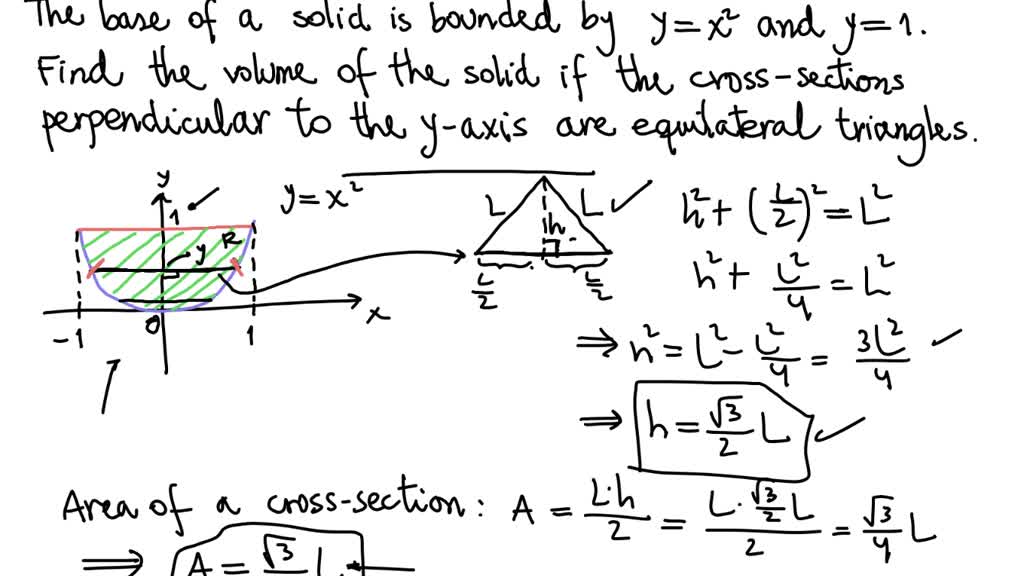 The base of a solid is bounded by y = x² and y = 1.
Find the volume of the solid if the cross-sections
perpendicular to the y-axis are equilateral triangles.
y
1
y = x²
R
y
x
0
-1
1
L
L
h
L/2
L/2
h² + (L/2)² = L²
h² + L²/4 = L²
⇒ h² = L² - L²/4 = 3L²/4
⇒ h = √3/2 L
Area of a cross-section: A = L·h/2 = L·√3/2 L/2 = √3/4 L
⇒ A = √3 L